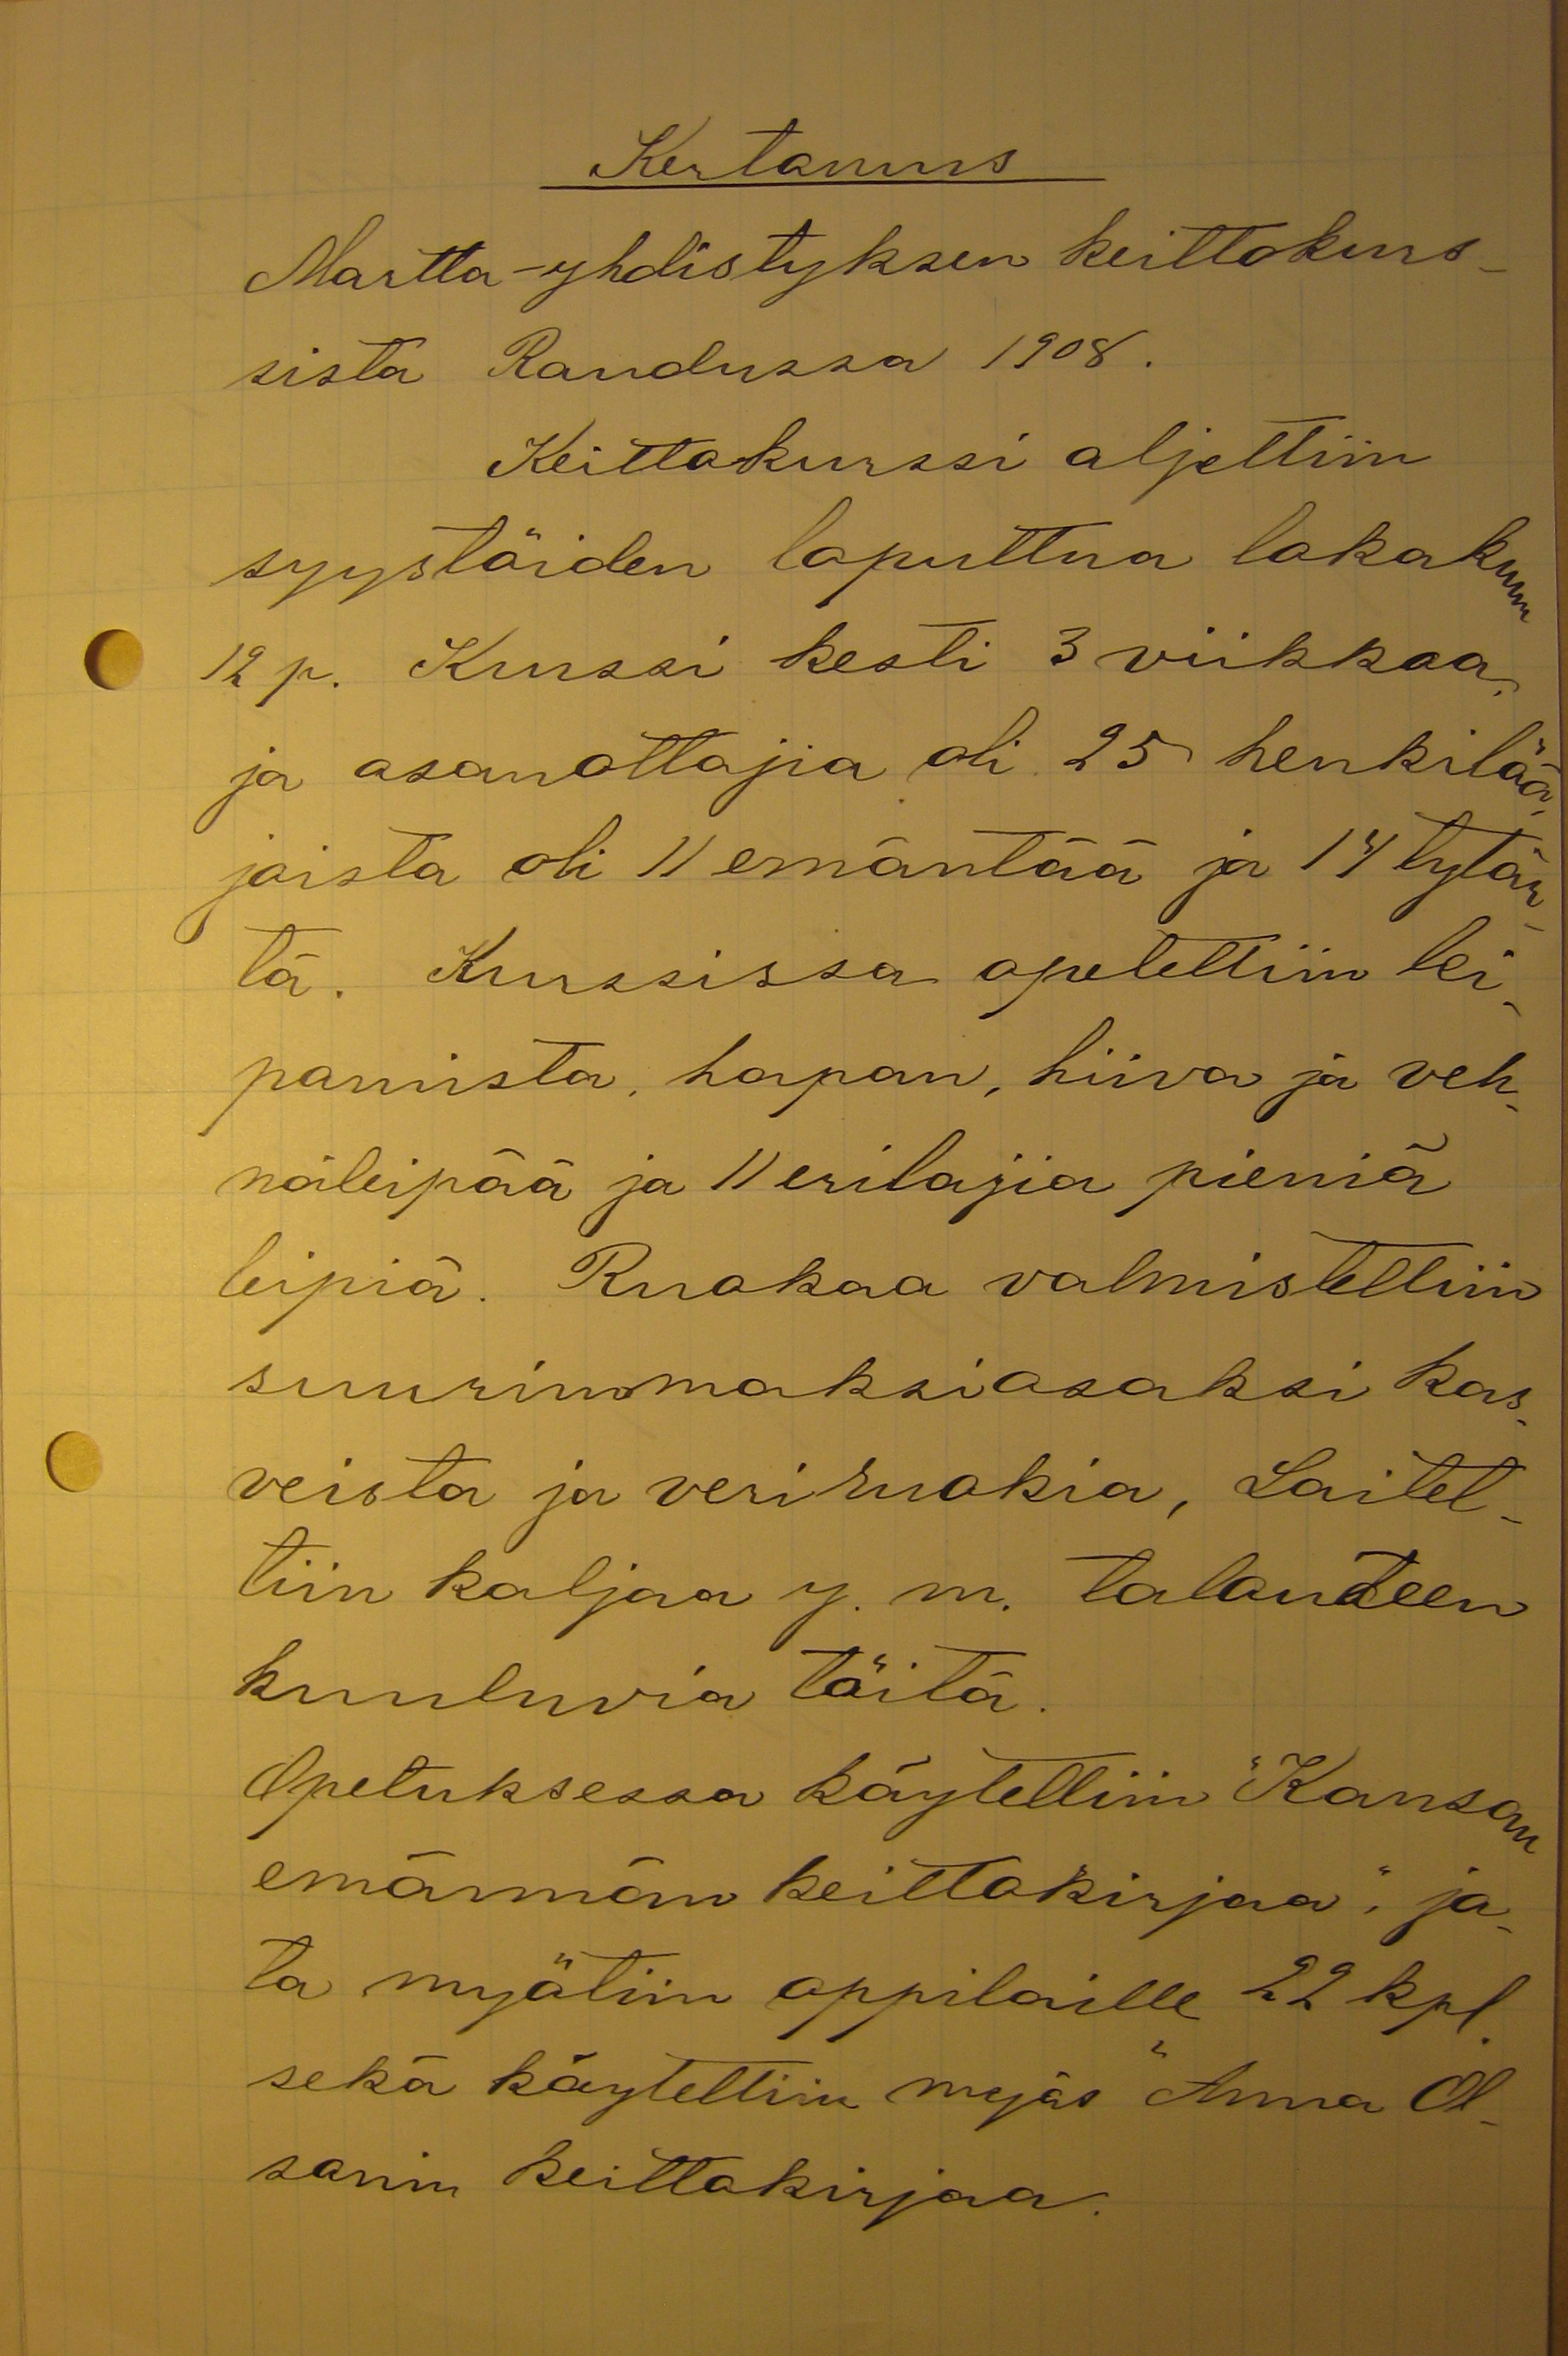 Kertomus
Martta-yhdistyksen keittokurs-
sista Randussa 1908.
Keittokurssi aljettiin
syystöiden loputtua lokakuun
12 p. Kurssi kesti 3 viikkoa,
ja osanottajia oli 25 henkilöä,
joista oli 11 emäntää ja 14 tytär-
tä. Kurssissa opetettiin lei-
pomista, hapan, hiiva ja veh-
näleipää ja 11 erilajia pieniä
leipiä. Ruokaa valmistettiin
suurimmaksiosaksi kas-
veista ja veriruokia, Laitet-
tiin kaljaa y. m. talouteen
kuuluvia töitä.
Opetuksessa käytettiin "Kansan
emännän keittokirjaa", jo-
ta myötiin oppilaille 22 kpl.
sekä käytettiin myös "Anna Ol-
sonin keittokirjaa.